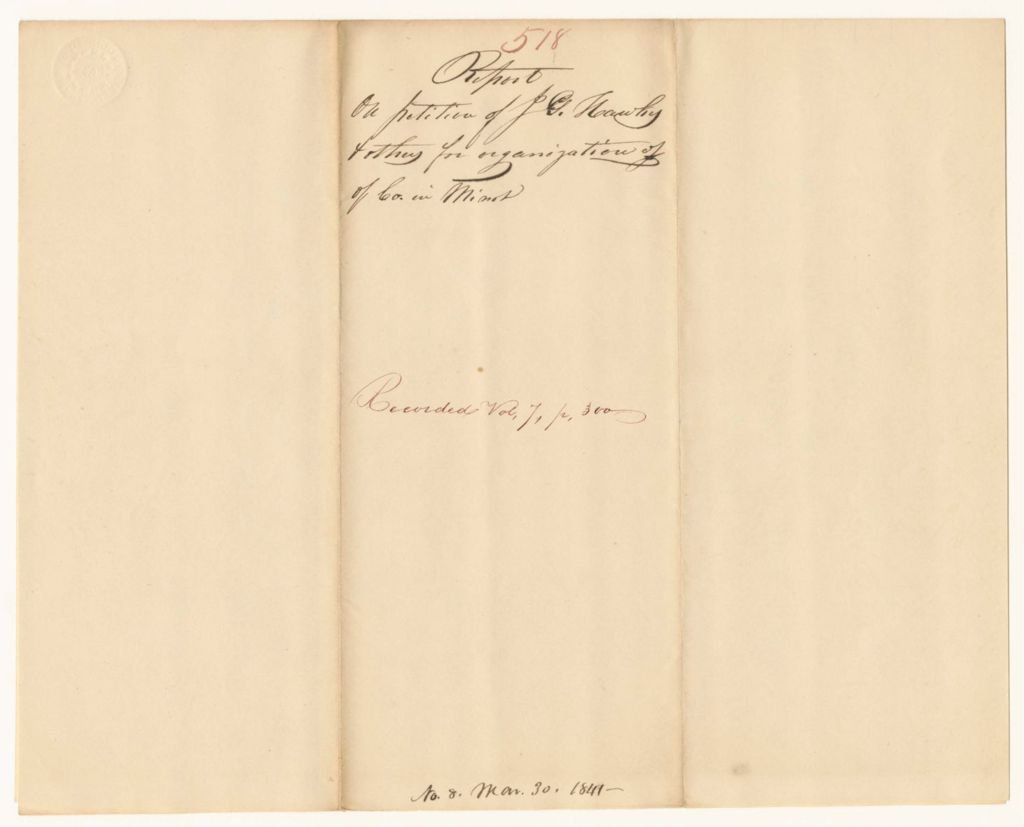 518
Report
On petition of J G. Hawkes
& others for organization of
of Co. in Minot
Recorded Vol, 7, p, 300
No. 8. Mar. 30. 1841-